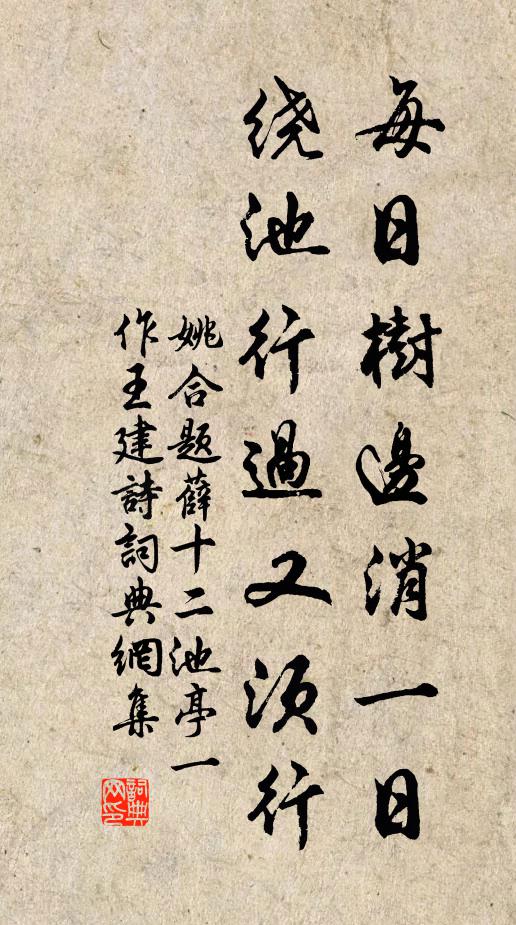 每日樹邊消一日
繞池行過又須行
姚合題薛十二池亭一
作王建詩詞典網集
詞典
网印